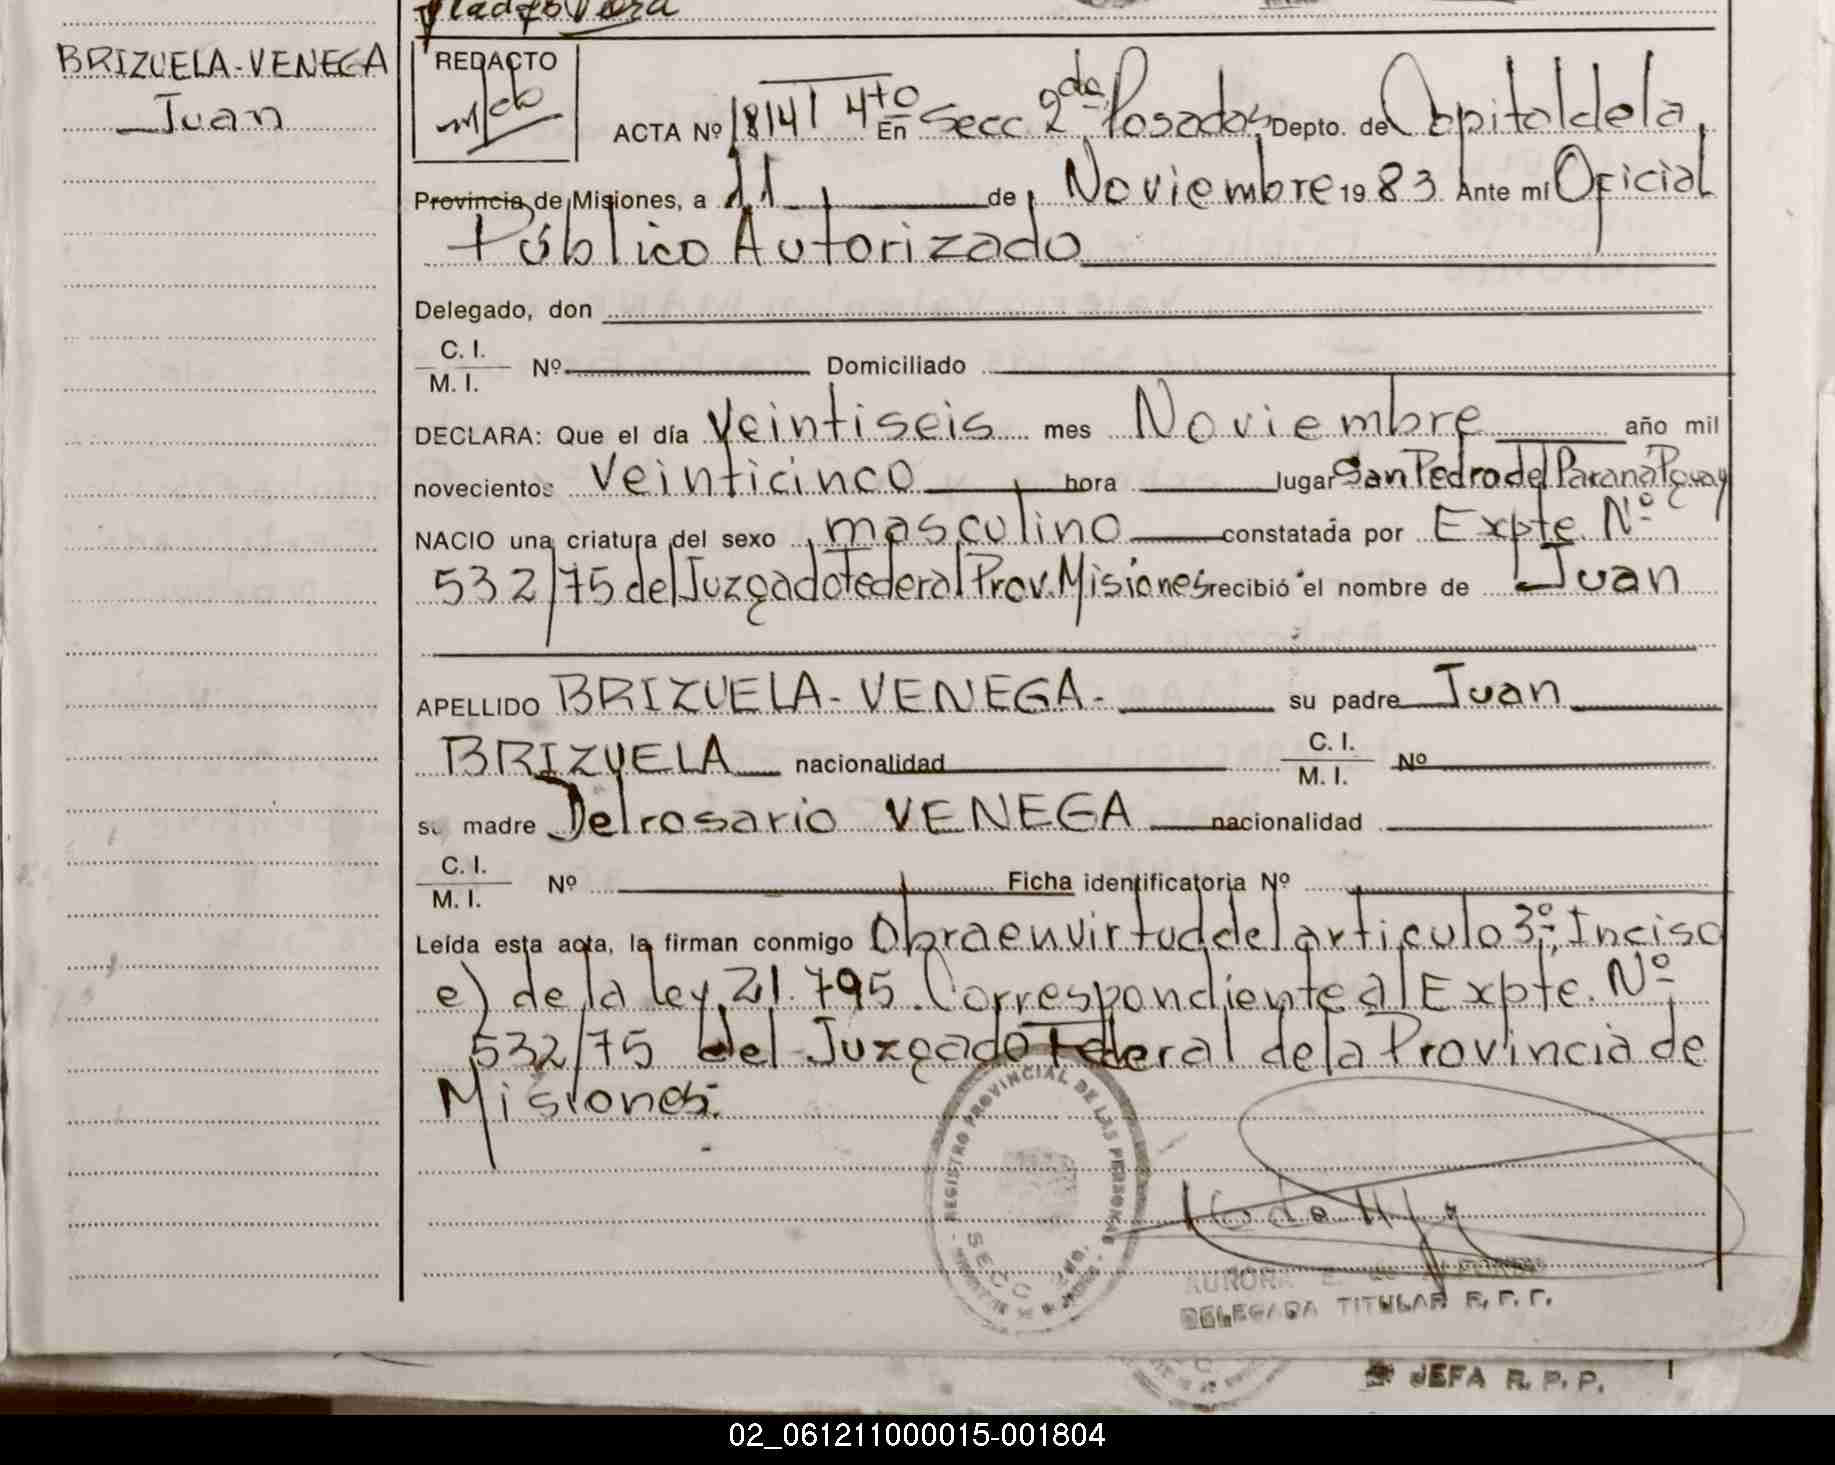 BRIZUELA-VENEGA
Juan
REDACTO
ACTA Nº 1814 4to En Secc 2da Posadas Depto. de Capital de la
Provincia de Misiones, a 11 de Noviembre 19 83 Ante mí Oficial
Público Autorizado
Delegado, don
C. I.
M. I. Nº Domiciliado
DECLARA: Que el día Veintiseis mes Noviembre año mil
novecientos Veinticinco hora lugar San Pedro del Paraná Pguay
NACIO una criatura del sexo masculino constatada por Expte. Nº
532/75 del Juzgado Federal Prov. Misiones recibió el nombre de Juan
APELLIDO BRIZUELA-VENEGA- su padre Juan
BRIZUELA nacionalidad C. I.
M. I. Nº
su madre Delrosario VENEGA nacionalidad
C. I.
M. I. Nº Ficha identificatoria Nº
Leída esta acta, la firman conmigo Obra en virtud del articulo 3º, Inciso
e) de la ley 21.795. Correspondiente al Expte. Nº
532/75 del Juzgado Federal de la Provincia de
Misiones.
REGISTRO PROVINCIAL DE LAS PERSONAS
SECC 2da.
AURORA E.
DELEGADA TITULAR R. P. P.
JEFA R. P. P.
02_061211000015-001804